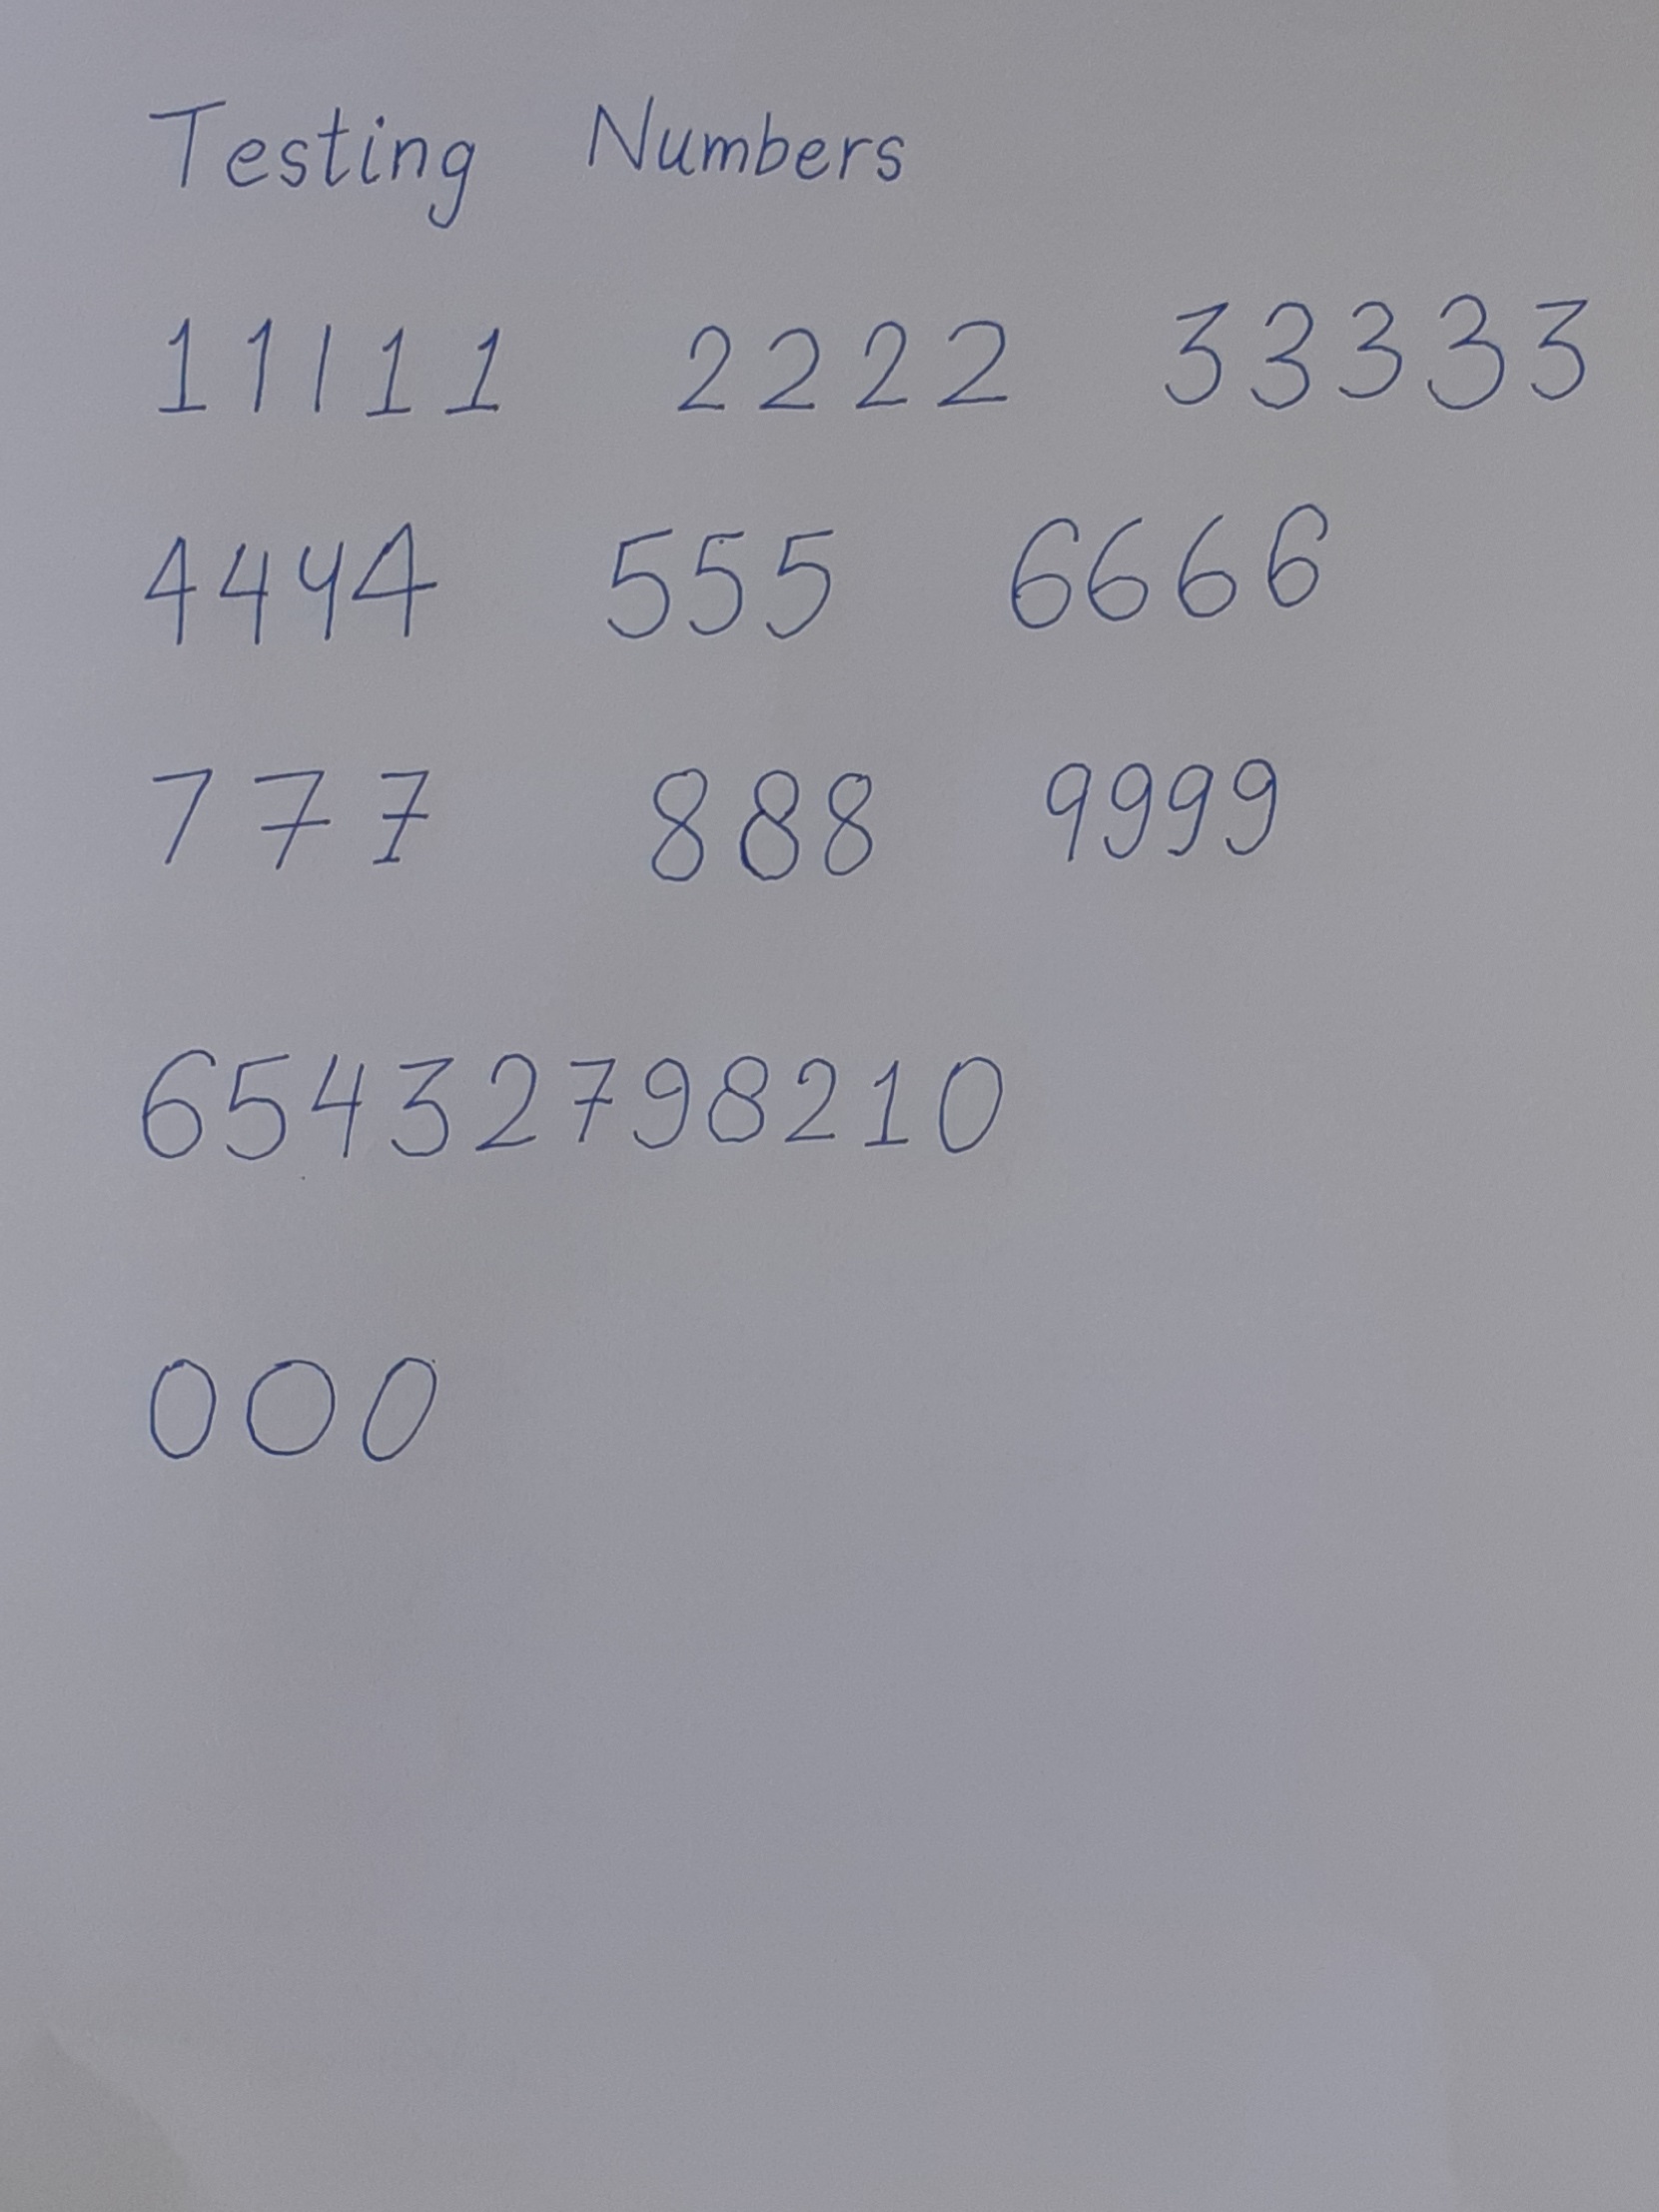 Testing Numbers
11111 2222 33333
4444 555 6666
777 888 9999
65432798210
000